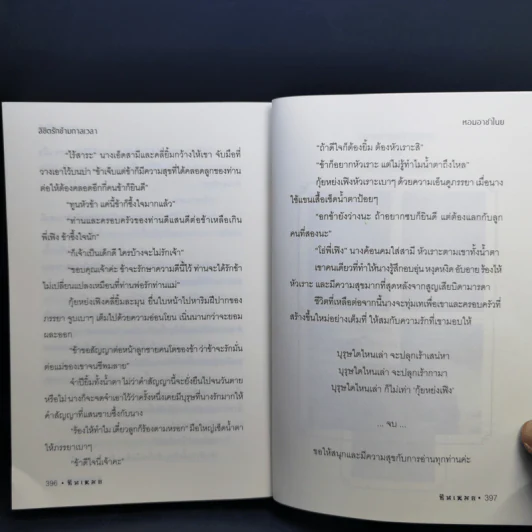 ลิขิตรักข้ามกาลเวลา
"ไร้สาระ" นางเอ็ดสามีและคลี่ยิ้มกว้างให้เขา จับมือที่
วางเอาไว้บนบ่า "ข้าเจ็บแต่ข้าก็มีความสุขที่ได้คลอดลูกของท่าน
ต่อให้ต้องคลอดอีกกี่คนข้าก็ยินดี"
"ทูนหัวข้า แค่นี้ข้าก็ซึ้งใจมากแล้ว"
"ท่านและครอบครัวของท่านดีแสนดีต่อข้าเหลือเกิน
พี่เฟิง ข้าซึ้งใจนัก"
"ก็เจ้าเป็นเด็กดี ใครบ้างจะไม่รักเจ้า"
"ขอบคุณเจ้าค่ะ ข้าจะรักษาความดีนี้ไว้ ท่านจะได้รักข้า
ไม่เปลี่ยนแปลงเหมือนที่ท่านพ่อรักท่านแม่"
กุ้ยหย่งเฟิงคลี่ยิ้มละมุน ยื่นใบหน้าไปหาริมฝีปากของ
ภรรยา จูบเบาๆ เต็มไปด้วยความอ่อนโยน เนิ่นนานกว่าจะยอม
ผละออก
"ข้าขอสัญญาต่อหน้าลูกชายคนโตของข้า ว่าข้าจะรักมั่น
ต่อแม่ของเขาจนชีพมลาย"
จำปียิ้มทั้งน้ำตา ไม่ว่าคำสัญญานี้จะยั่งยืนไปจนวันตาย
หรือไม่ นางก็จะจดจำเอาไว้ว่าครั้งหนึ่งเคยมีบุรุษที่นางรักมากให้
คำสัญญาที่แสนซาบซึ้งกับนาง
"ร้องไห้ทำไม เดี๋ยวลูกก็ร้องตามหรอก" มือใหญ่เช็ดน้ำตา
ให้ภรรยาเบาๆ
"ข้าดีใจนี่เจ้าคะ"
396 •
หอมอาชาไนย
"ถ้าดีใจก็ต้องยิ้ม ต้องหัวเราะสิ"
"ข้าก็อยากหัวเราะ แต่ไม่รู้ทำไมน้ำตาถึงไหล"
กุ้ยหย่งเฟิงหัวเราะเบาๆ ด้วยความเอ็นดูภรรยา เมื่อนาง
ใช้แขนเสื้อเช็ดน้ำตาป้อยๆ
"อกข้ายังว่างนะ ถ้าอยากซบก็ยินดี แต่ต้องแลกกับลูก
คนที่สองนะ"
"โธ่พี่เฟิง" นางค้อนคมใส่สามี หัวเราะตามเขาทั้งน้ำตา
เขาคนเดียวที่ทำให้นางรู้สึกอบอุ่น หงุดหงิด อับอาย ร้องไห้
หัวเราะ และมีความสุขมากที่สุดหลังจากสูญเสียบิดามารดา
ชีวิตที่เหลือต่อจากนี้นางจะทุ่มเทเพื่อเขาและครอบครัวที่
สร้างขึ้นใหม่อย่างเต็มที่ ให้สมกับความรักที่เขามอบให้
บุรุษใดไหนเล่า จะปลุกเร้าเสน่หา
บุรุษใดไหนเล่า จะปลุกเร้ากามา
บุรุษใดไหนเล่า ก็ไม่เท่า 'กุ้ยหย่งเฟิง'
... จบ ...
ขอให้สนุกและมีความสุขกับการอ่านทุกท่านค่ะ
• 397